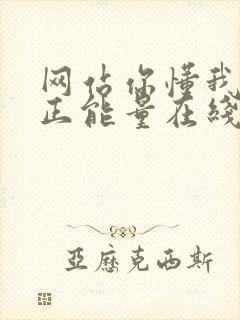 网站你懂我
正能量在线
亞歷克西斯